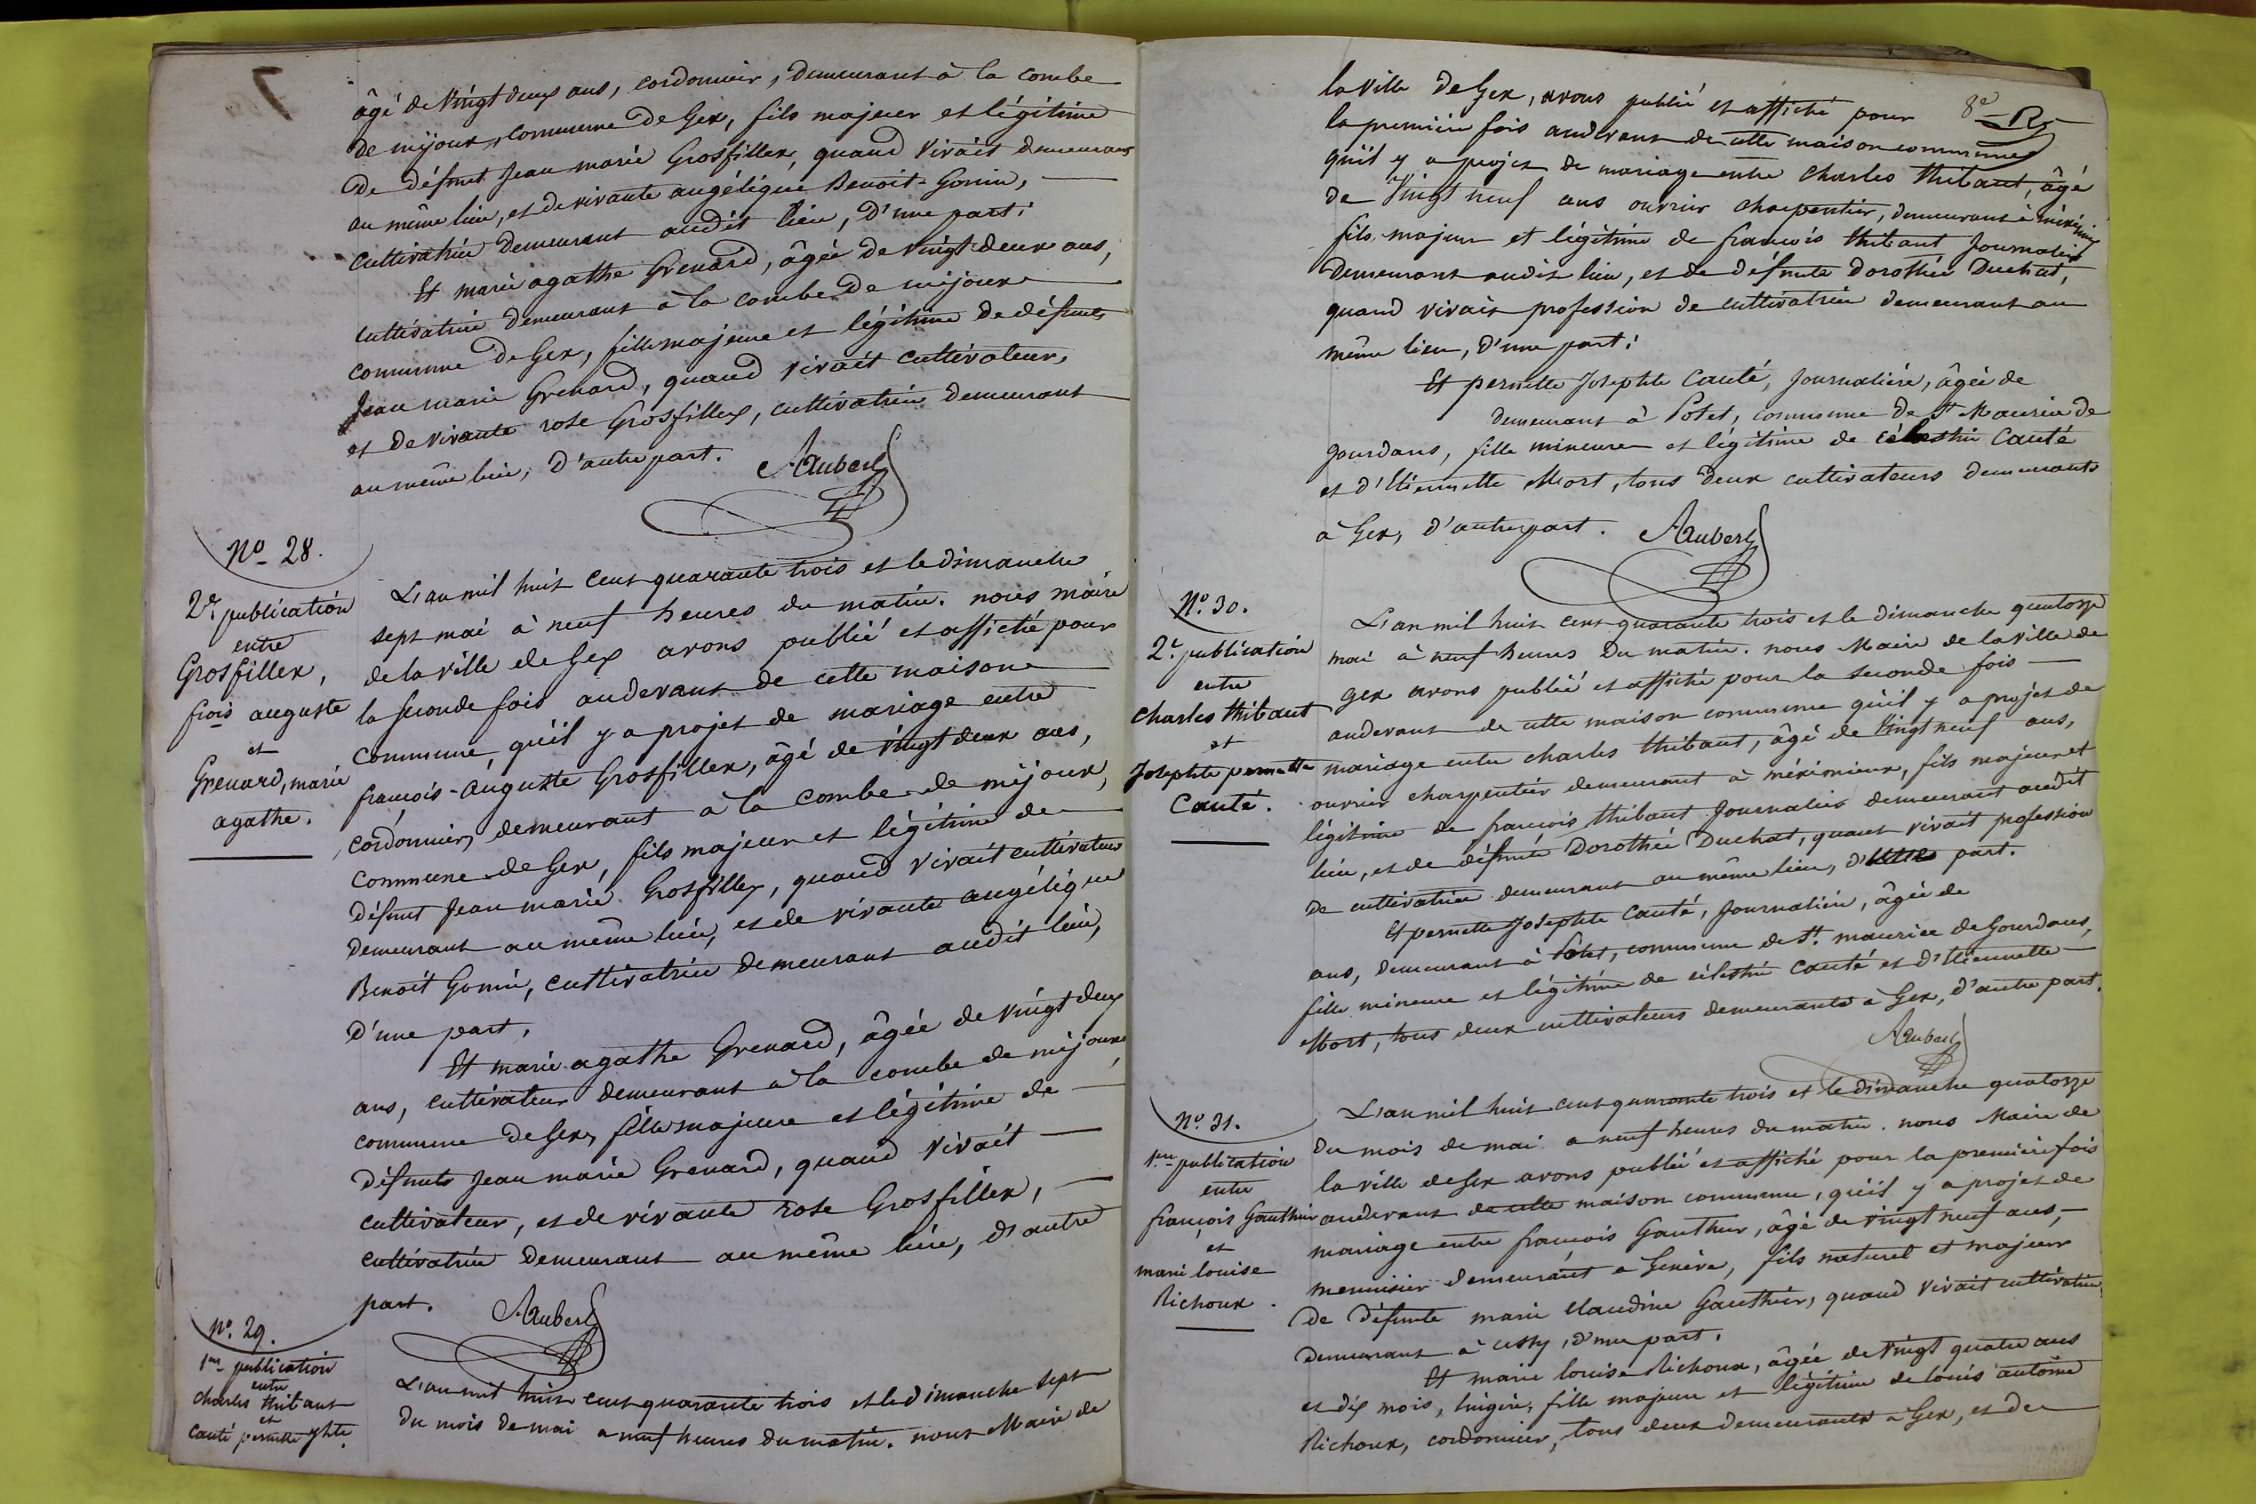 âgé de vingt deux ans, cordonnier, demeurant à la combe
de mijoux, commune de Gex, fils majeur et légitime
de défunt Jean marie Grosfillex, quand vivait demeurant
au même lieu, et de vivante angélique Benoit-Gonin,
cultivatrice demeurant audit lieu, d'une part;
Et marie agathe Grenard, âgée de vingt deux ans,
cultivatrice demeurant à la combe de mijoux
commune de Gex, fille majeure et légitime de défunts
Jean marie Grenard, quand vivait cultivateur,
et de vivante rose Grosfillex, cultivatrice demeurant
au même lieu, d'autre part.
Aubert
No 28.
2e publication
entre
Grosfillex,
frois auguste
et
Grenard, marie
agathe.
L'an mil huit cent quarante trois et le dimanche
sept mai à neuf heures du matin. nous maire
de la ville de Gex avons publié et affiché pour
la seconde fois audevant de cette maison
commune, qu'il y a projet de mariage entre
françois-auguste Grosfillex, âgé de vingt deux ans,
cordonnier, demeurant à la combe de mijoux,
commune de Gex, fils majeur et légitime de
défunt Jean marie Grosfillex, quand vivait cultivateur
demeurant au même lieu, et de vivante angélique
Benoit Gonin, cultivatrice demeurant audit lieu,
d'une part,
Et marie agathe Grenard, âgée de vingt deux
ans, cultivateur demeurant à la combe de mijoux,
commune de Gex, fille majeure et légitime de
défunts Jean marie Grenard, quand vivait
cultivateur, et de vivante rose Grosfillex,
cultivatrice demeurant au même lieu, d'autre
part.
Aubert
No. 29.
1ere publication
entre
charles thibaut
et
cauté pernette jphte.
L'an mil huit cent quarante trois et le dimanche sept
du mois de mai a neuf heures du matin. nous Maire de
8e
la ville de Gex, avons publié et affiché pour
la première fois audevant de cette maison commune
qu'il y a projet de mariage entre charles thibaut, âgé
de vingt neuf ans ouvrier charpentier, demeurant à méximieux
fils majeur et légitime de françois thibaut Journalier
demeurant audit lieu, et de défunte dorothée Duchat,
quand vivait profession de cultivatrice demeurant au
même lieu, d'une part;
Et pernette Josephte Cauté, Journalière, âgée de
demeurant à Polet, commune de St Maurice de
gourdans, fille mineure et légitime de célesthin Cauté
et d'Etiennette Mort, tous deux cultivateurs demeurants
à Gex, d'autre part.
Aubert
No. 30.
2e. publication
entre
charles thibaut
et
Josephte pernette
Cauté.
L'an mil huit cent quarante trois et le dimanche quatorze
mai à neuf heures du matin. nous Maire de la ville de
gex avons publié et affiché pour la seconde fois
audevant de cette maison commune qu'il y a projet de
mariage entre charles thibaut, âgé de vingt neuf ans,
ouvrier charpentier demeurant à méximieux, fils majeur et
légitime de françois thibaut Journalier demeurant audit
lieu, et de défunte Dorothée Duchat, quant vivait profession
de cultivatrice demeurant au même lieu, part.
Et pernette Josephte Cauté, Journalière, âgée de
ans, demeurant à Polet, commune de St. maurice de Gourdans,
fille mineure et légitime de célesthin Cauté et d'Etiennette
Mort, tous deux cultivateurs demeurants à Gex, d'autre part.
Aubert
No. 31.
1ere publication
entre
françois Gauthier
et
marie louise
Richoux.
L'an mil huit cent quarante trois et le dimanche quatorze
du mois de mai a neuf heures du matin. nous Maire de
la ville de Gex avons publié et affiché pour la première fois
audevant de cette maison commune, qu'il y a projet de
mariage entre françois Gauthier, âgé de vingt neuf ans,
menuisier demeurant à Genève, fils naturel et majeur
de défunte marie claudine Gauthier, quand vivait cultivatrice
demeurant à cessy, d'une part.
Et marie louise Richoux, âgée de vingt quatre ans
et dix mois, lingère, fille majeure et légitime de louis antoine
Richoux, cordonnier, tous deux demeurants à Gex, et de